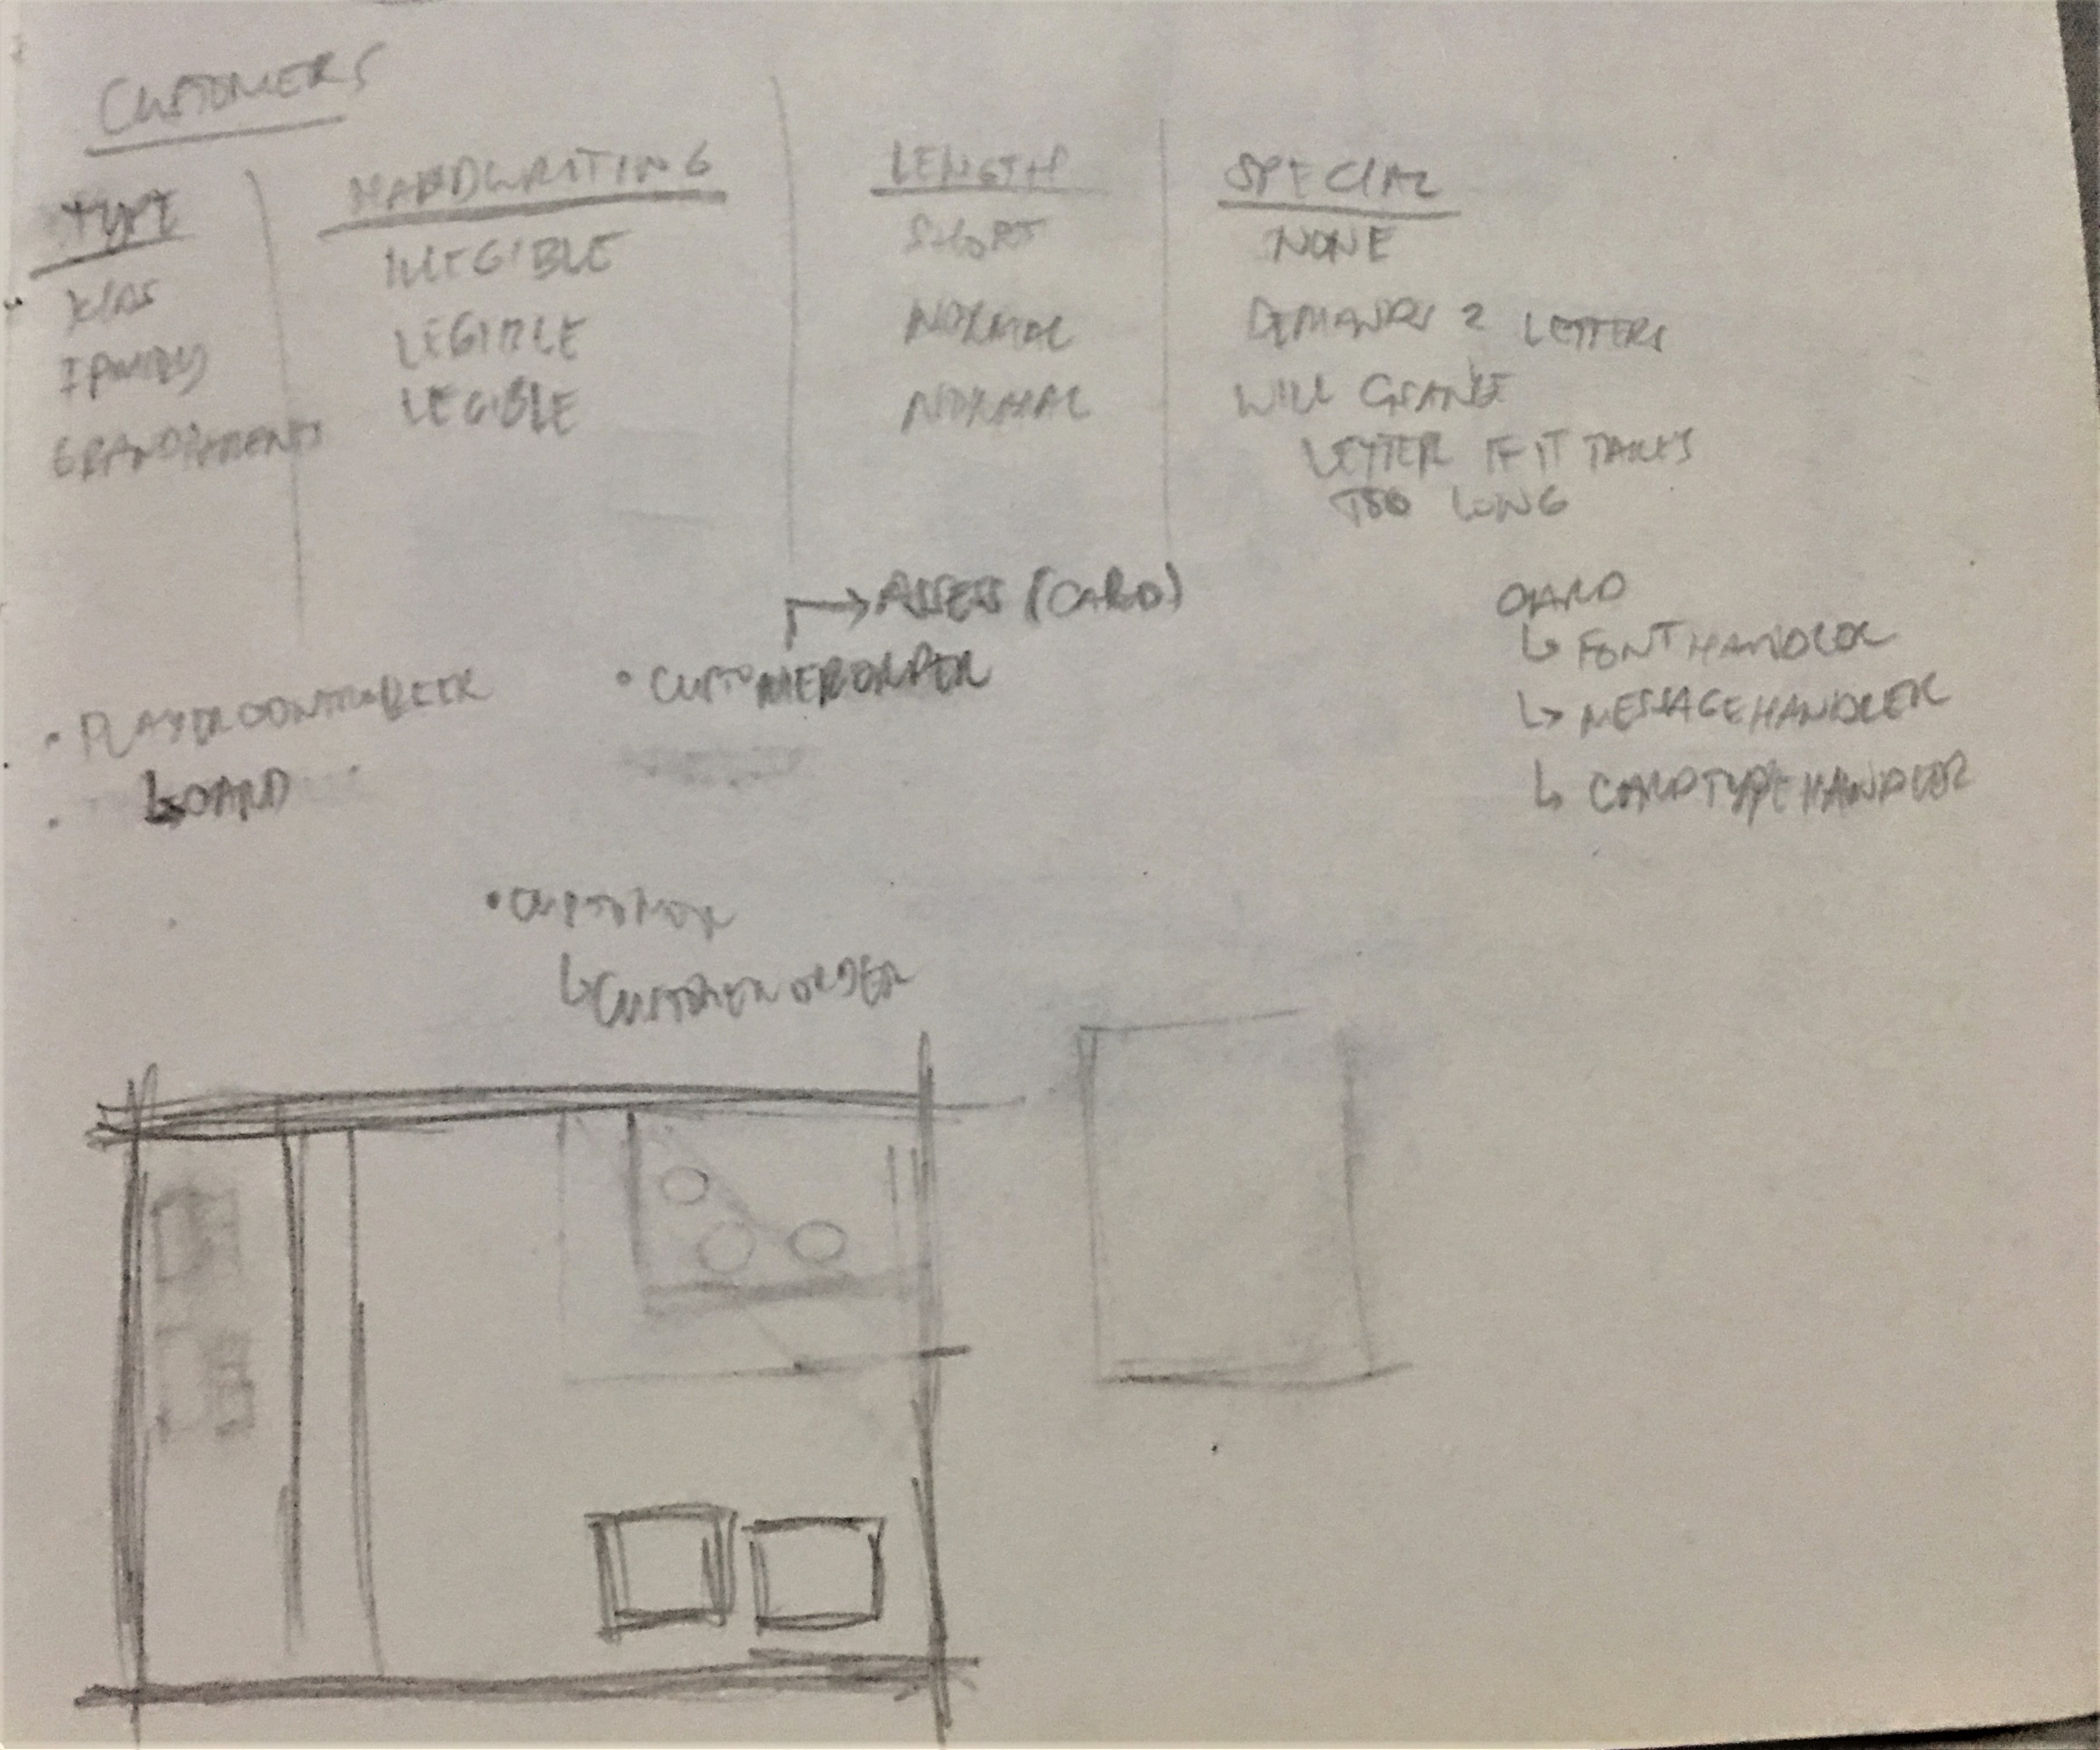 CUSTOMERS
TYPE HANDWRITING LENGTH SPECIAL
KIDS ILLEGIBLE SHORT NONE
LEGIBLE NORMAL DEMANDS 2 LETTERS
GRANDPARENTS LEGIBLE NORMAL WILL
LETTER IF IT TAKES
TOO LONG
ASSESS (CARD)
• CUSTOMERORDER
• PLAYERCONTROLLER
CARD
CARD
FONTHANDLER
MESSAGEHANDLER
CARDTYPEHANDLER
• CUSTOMER
CUSTOMERORDER